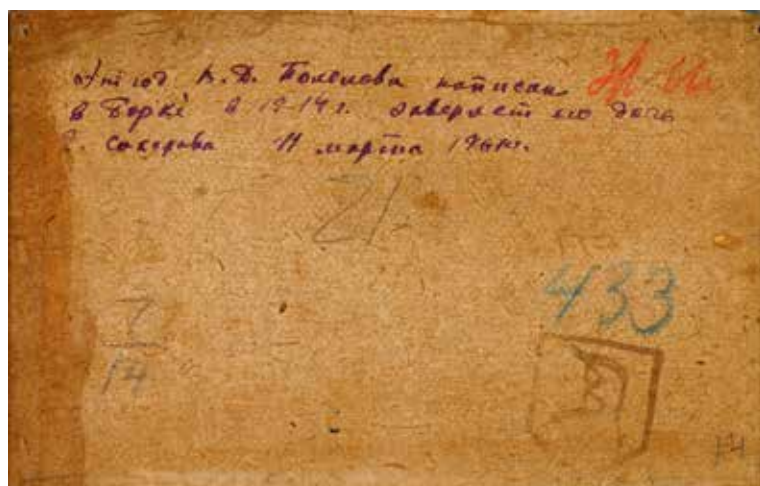 этюд В.Д. Поленова написан
в Борке в 1914 г. заверяет его дочь
Е. Сахарова 11 марта
21
433
7
14
14